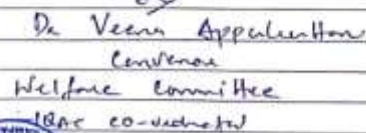 Dr Veena Appukuttan
Convenor
Welfare Committee
IQAC co-ordinator